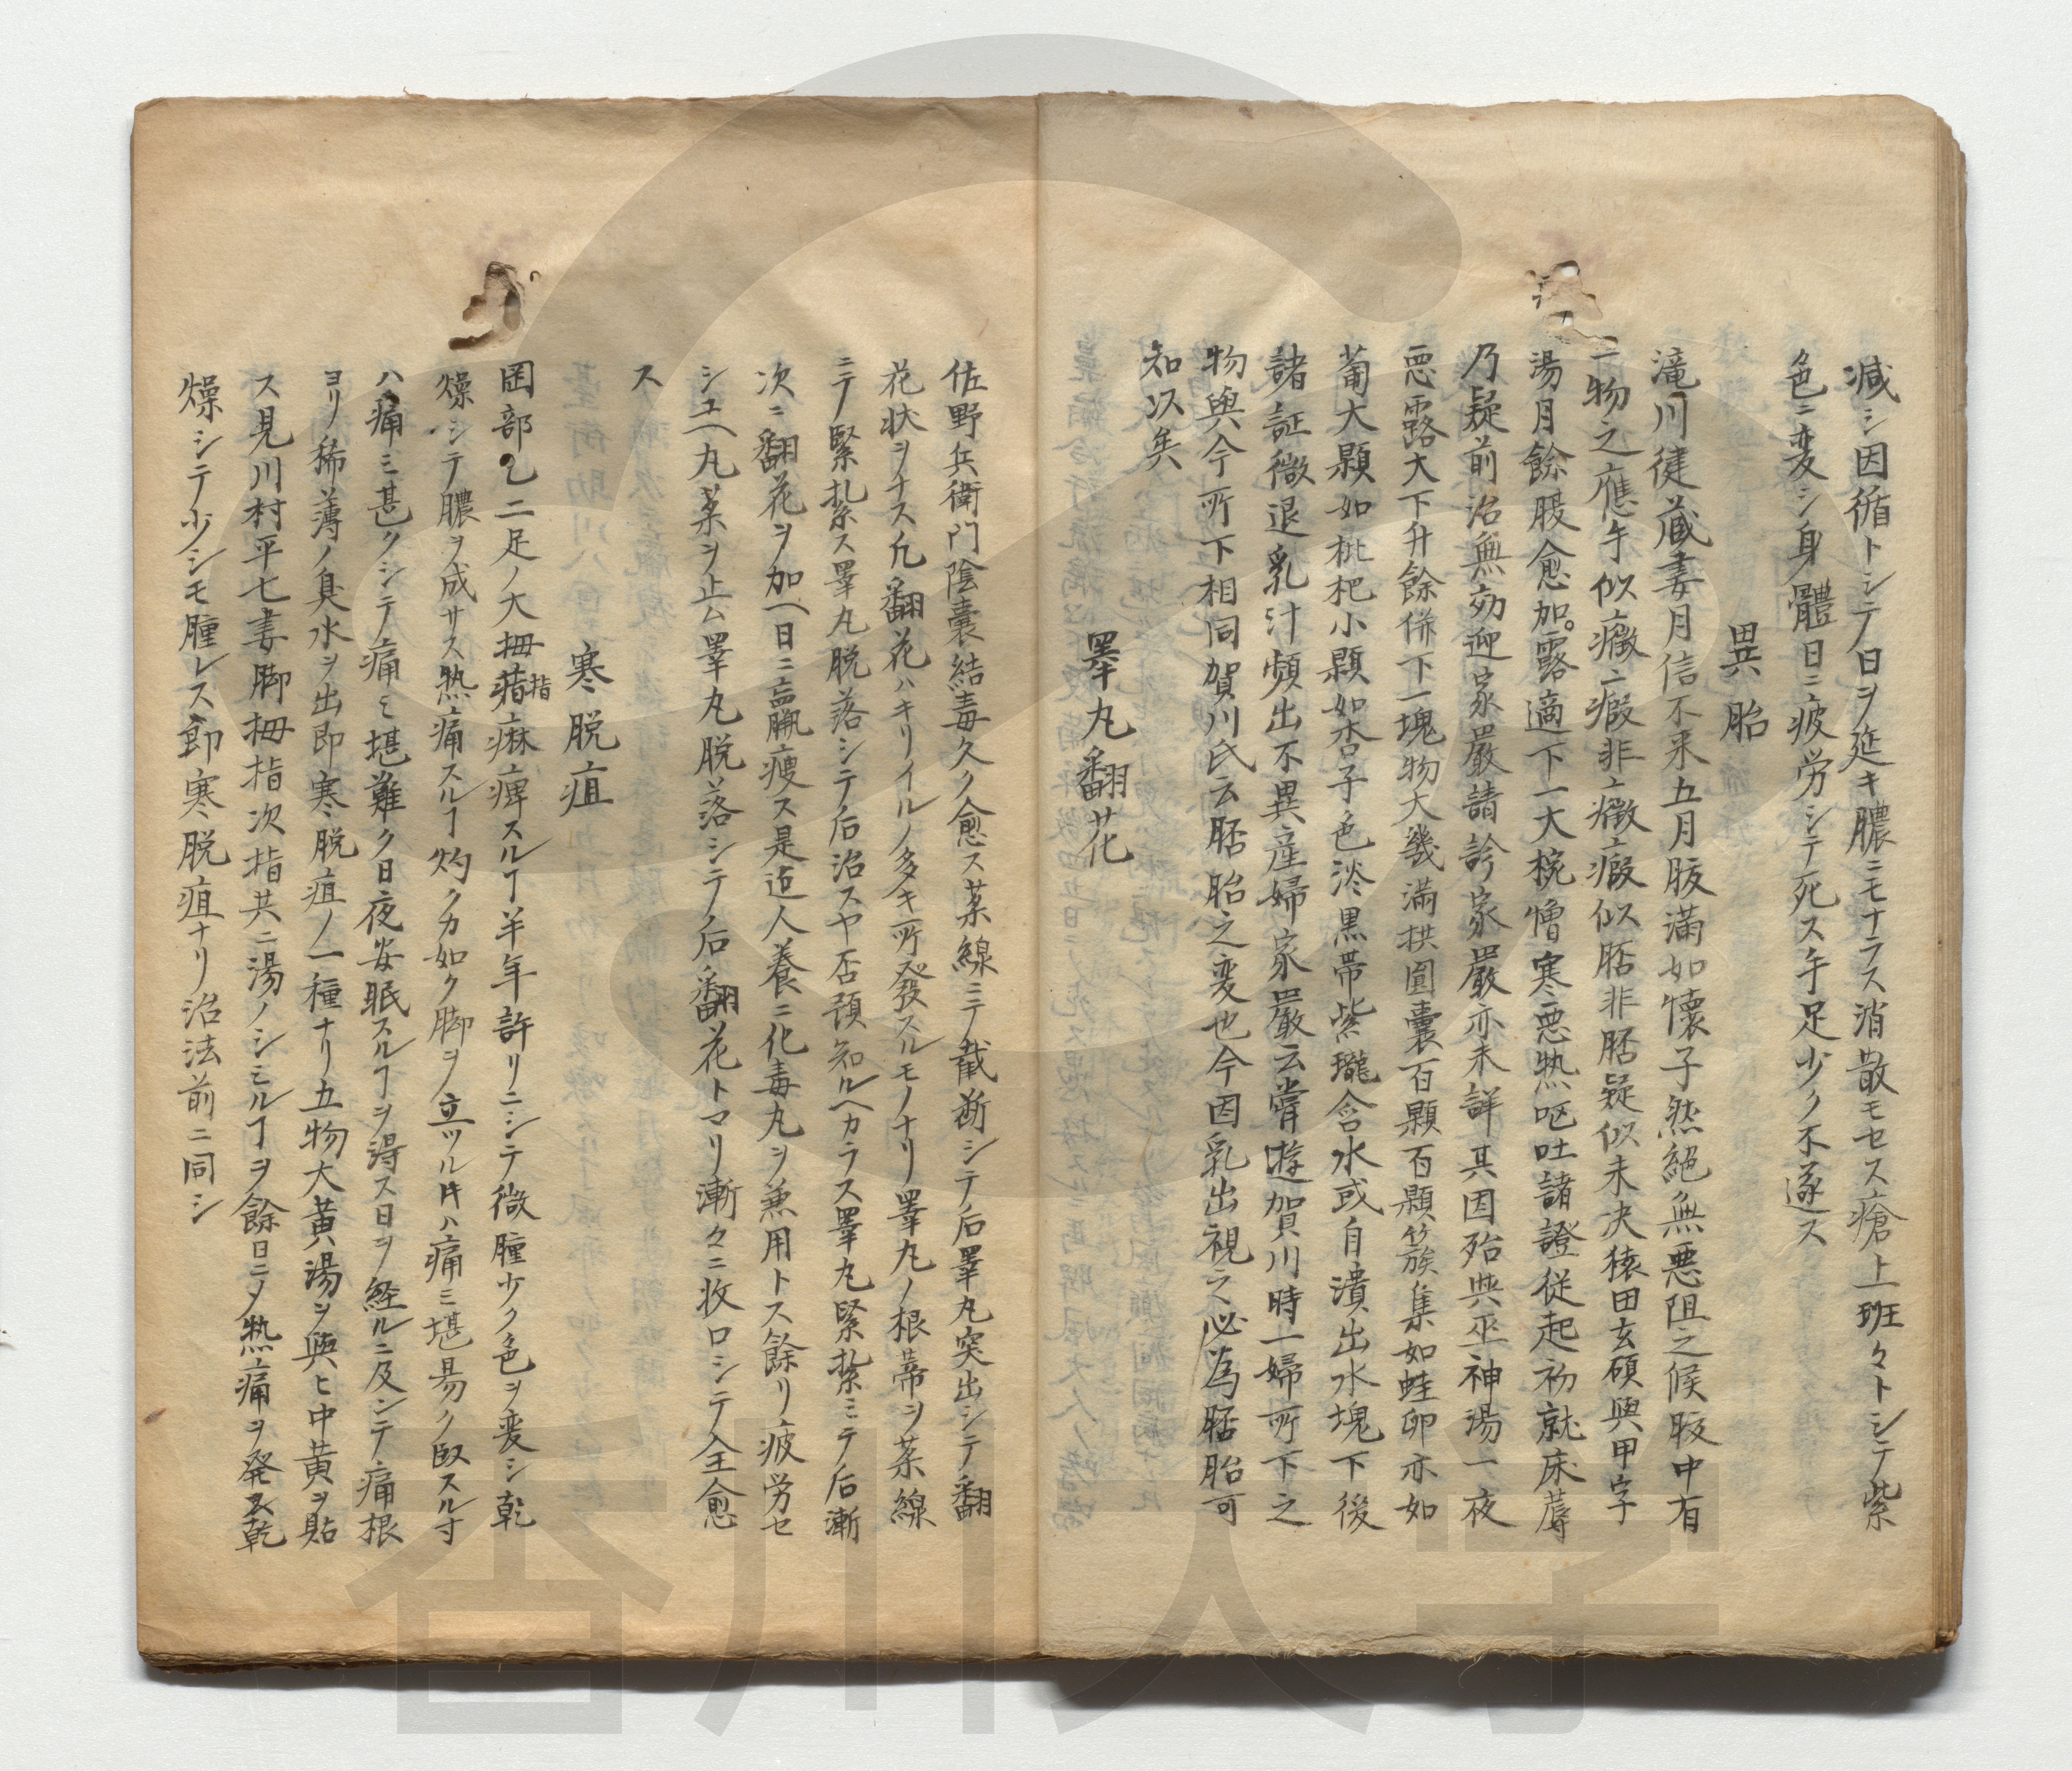 減シ因循トシテ日ヲ延キ膿ニモナラス消散モセス瘡上班々トシテ紫
色ニ変シ身體日ニ疲労シテ死ス手足少ク不遂ス
異胎
滝川徤蔵妻月信不来五月腹満如懐子然絕無悪阻之候腹中有
一物之應手似癥ニ瘕非ニ癥ニ瘕似胚非胚疑似未决猿田玄碩與甲字
湯月餘腹愈加露適下一大椀憎寒悪熱呕吐諸證従起初就床蓐
乃疑前治無効迎家嚴請診家嚴亦未詳其因殆與巫神湯一夜
悪露大下升餘併下一塊物大幾満拱圍嚢百顆百顆簇集如蛙卵亦如
葡大顆如枇杷小顆如杏子色淡黒帯紫瓏含水或自潰出水塊下後
諸証微退乳汁頻出不異産婦家嚴云嘗遊賀川時一婦所下之
物與今所下相同賀川氏云胚胎之変也今因乳出視之必為胚胎可
知以矣
睾丸翻花
佐野兵衛門陰嚢結毒久ク愈ス薬線ニテ截断シテ后睾丸突出シテ翻
花状ヲナス凢翻花ハキリイルノ多キ所發スルモノナリ睾丸ノ根蒂ヲ薬線
ニテ緊紮ス睾丸脱落シテ后治スヤ否預知ルヘカラス睾丸緊紮ミテ后漸
次ニ翻花ヲ加ヘ日ニ羸痩ス是迠人養ニ化毒丸ヲ兼用トス餘リ疲労セ
シユヘ丸薬ヲ止ム睾丸脱落シテノ后翻花トマリ漸々ニ收口シテ全愈
ス
寒脱疽
岡部乙二足ノ大拇指麻痺スルヿ半年許リニシテ微腫少ク色ヲ変シ乾
燥シテ膿ヲ成サス熱痛スルヿ灼クカ如ク脚ヲ立ツル㕝ハ痛ミ堪易ク臥スル寸
ハ痛ミ甚クシテ痛ミ堪難ク日夜安眠スルヿヲ得ス日ヲ経ルニ及ンテ痛根
ヨリ稀薄ノ臭水ヲ出即寒脱疽ノ一種ナリ五物大黄湯ヲ與ヒ中黄ヲ貼
ス見川村平七妻脚拇指次指共ニ湯ノシミルヿヲ餘日ニメ熱痛ヲ発ス乾
燥シテ少シモ腫レス即寒脱疽ナリ治法前ニ同シ
香川大学